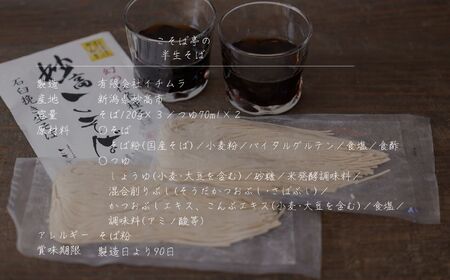 こそば亭の
半生そば
製造 有限会社イチムラ
産地 新潟県妙高市
容量 そば120g×3/つゆ70ml×2
原材料 〇そば
そば粉(国産そば)/小麦粉/バイタルグルテン/食塩/食酢
〇つゆ
しょうゆ(小麦・大豆を含む)/砂糖/米発酵調味料/
混合削りぶし(そうだかつおぶし・さばぶし)/
かつおぶしエキス、こんぶエキス(小麦・大豆を含む)/食塩/
調味料(アミノ酸等)
アレルギー そば粉
賞味期限 製造日より90日
妙高こそば
石臼挽き